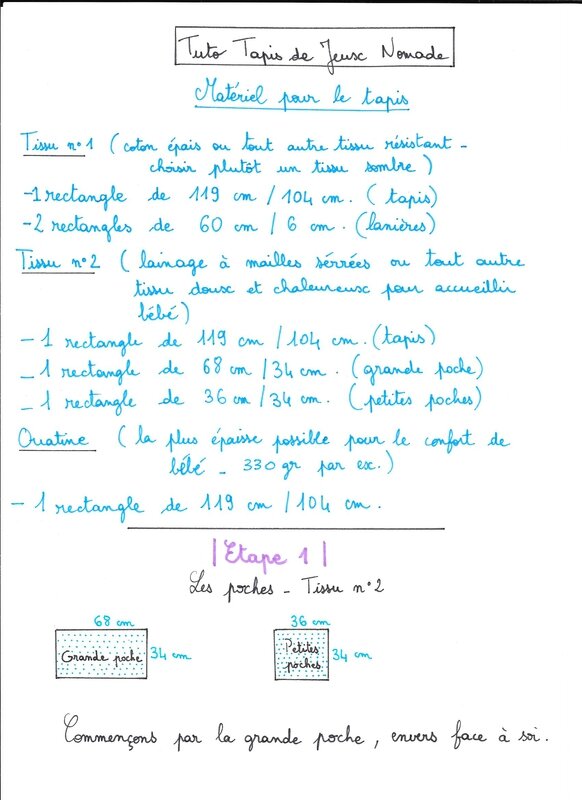 Tuto Tapis de Jeux Nomade
Matériel pour le tapis
Tissu n°1 ( coton épais ou tout autre tissu résistant -
choisir plutôt un tissu sombre )
-1 rectangle de 119 cm / 104 cm. ( tapis)
-2 rectangles de 60 cm / 6 cm. (lanières)
Tissu n°2 ( lainage à mailles sérrées ou tout autre
tissu doux et chaleureux pour accueillir
bébé )
- 1 rectangle de 119 cm / 104 cm. (tapis)
_ 1 rectangle de 68 cm / 34 cm . (grande poche)
_ 1 rectangle de 36 cm / 34 cm . (petites poches)
Ouatine ( la plus épaisse possible pour le confort de
bébé _ 330 gr par ex.)
- 1 rectangle de 119 cm / 104 cm.
| Etape 1 |
Les poches - Tissu n°2
68 cm 36 cm
Grande poche 34 cm Petites poches 34 cm
Commençons par la grande poche , envers face à soi .